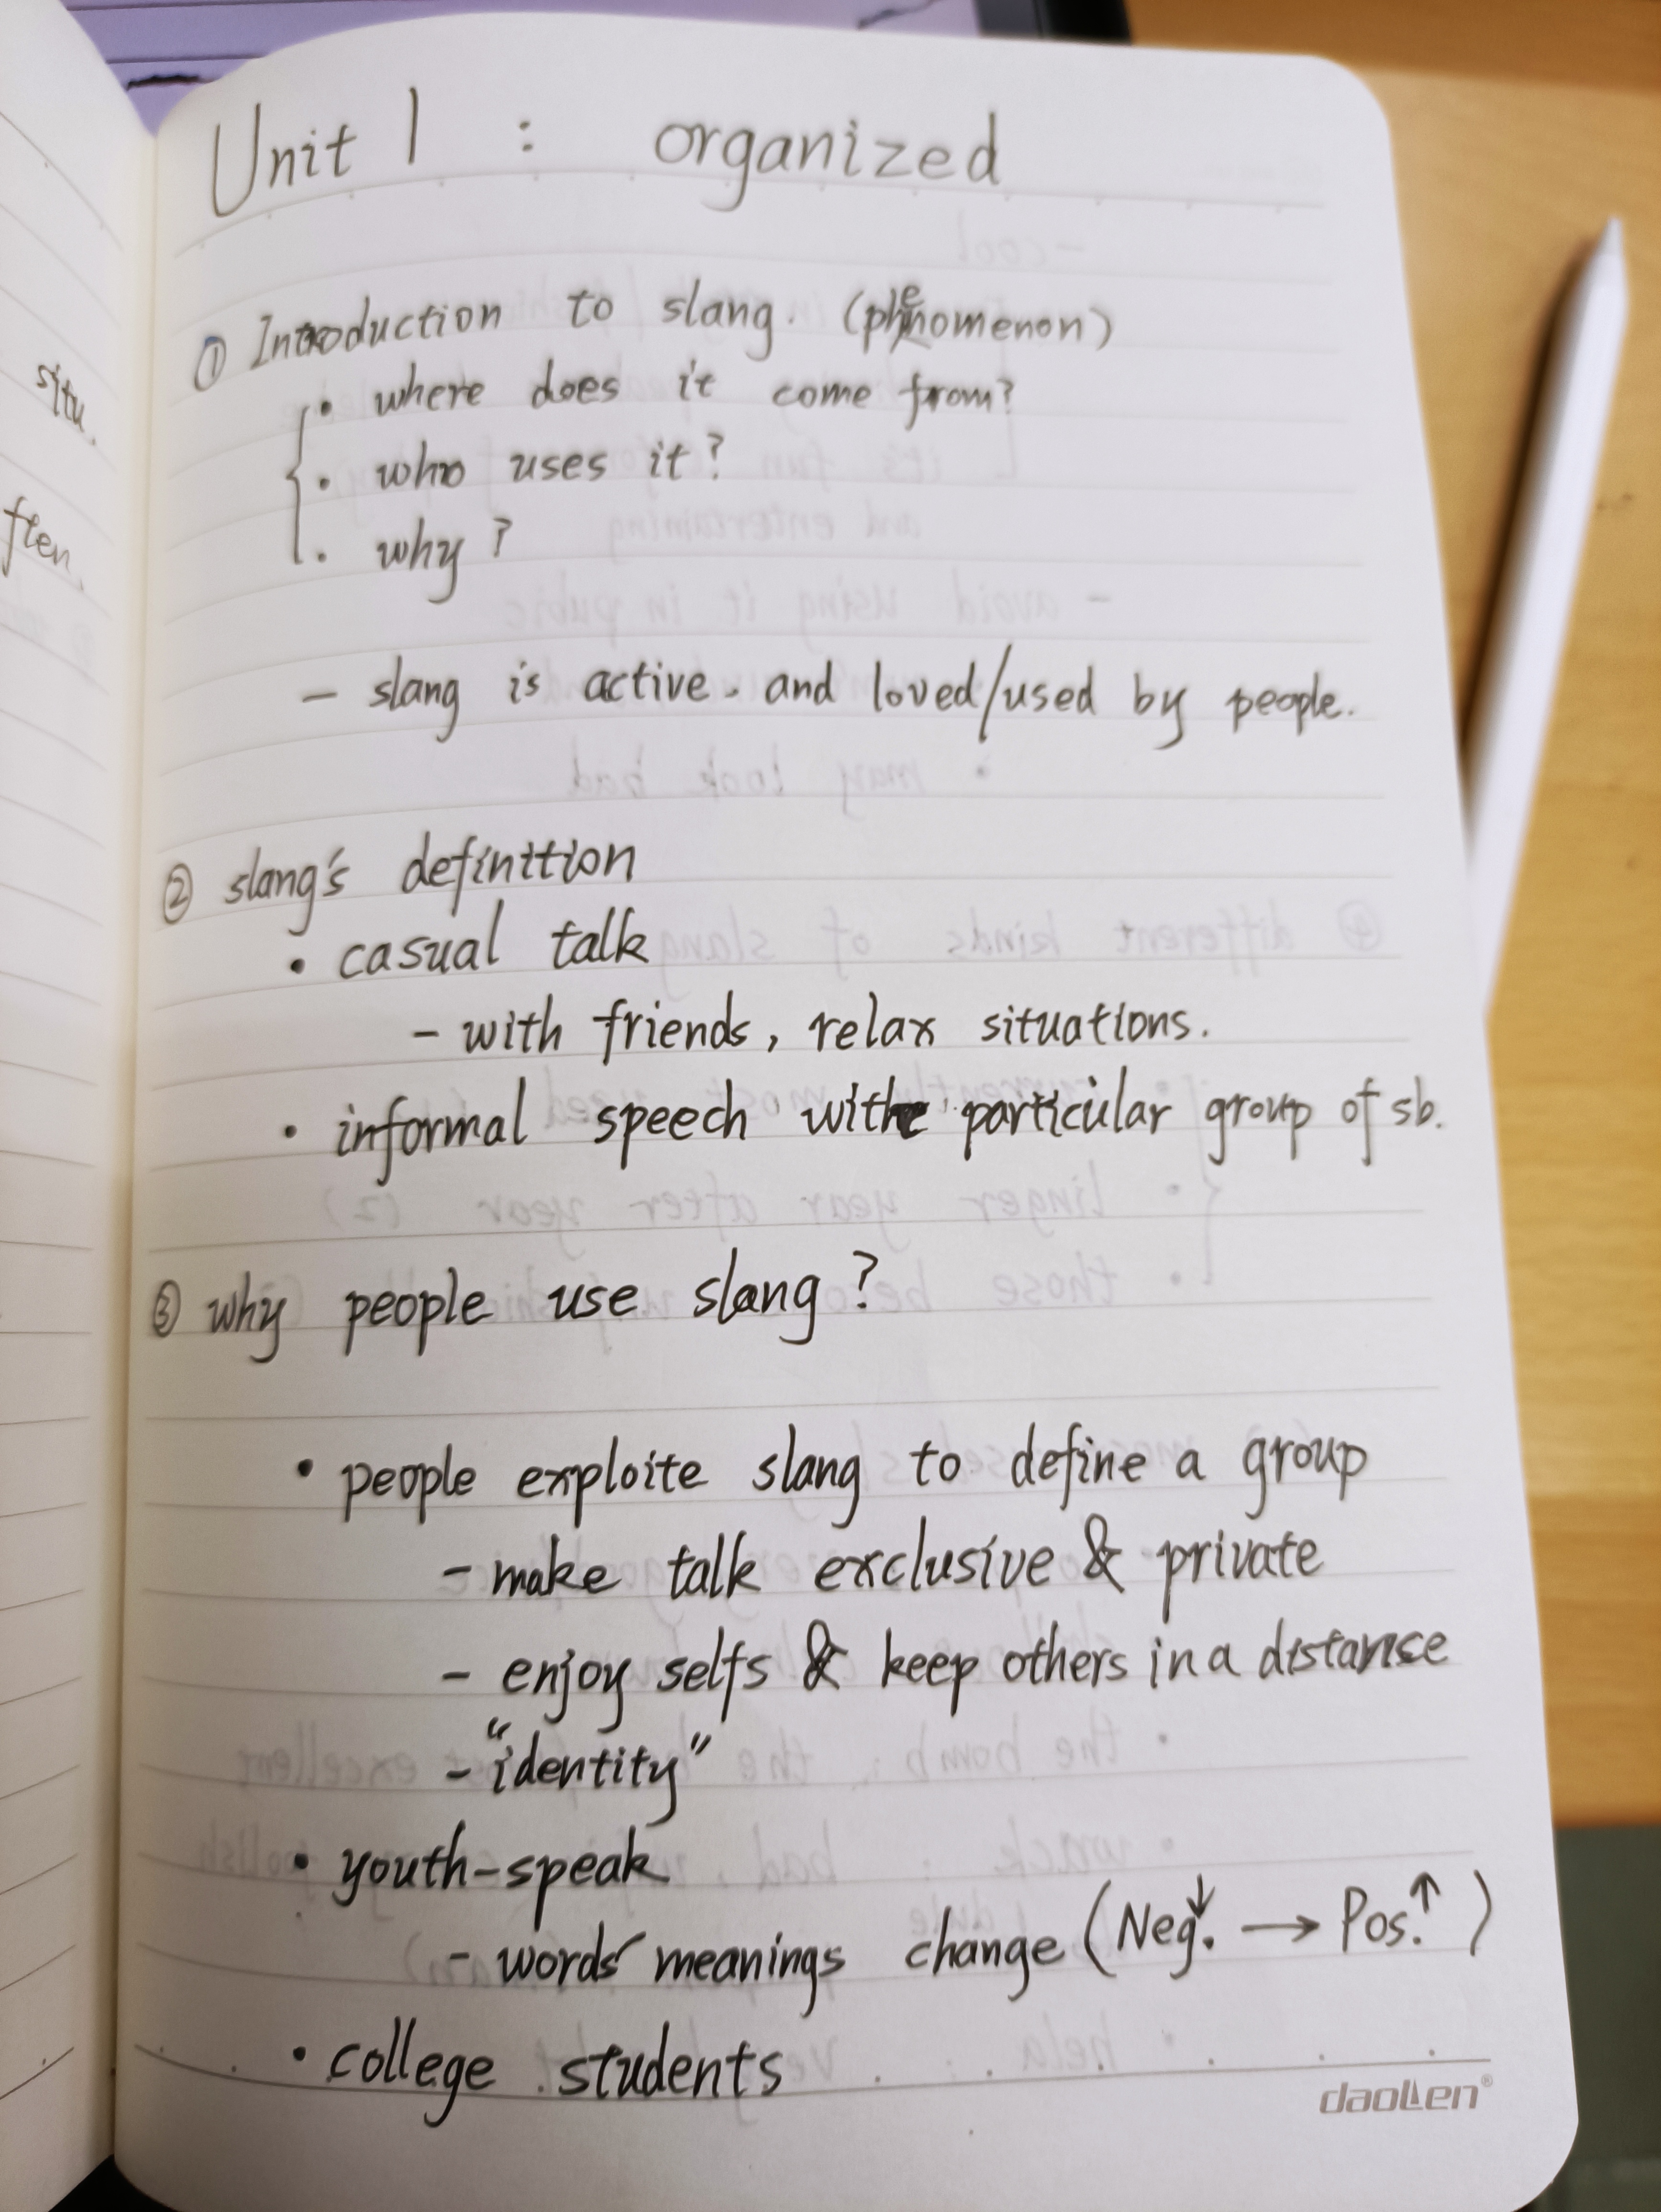 Unit 1 : organized
① Introduction to slang. (phenomenon)
• where does it come from?
• who uses it?
• why?
– slang is active. and loved/used by people.
② slang's definition
• casual talk
– with friends, relax situations.
• informal speech with particular group of sb.
③ why people use slang?
• people exploite slang to define a group
– make talk exclusive & private
– enjoy selfs & keep others in a distance
– "identity"
• youth-speak
– words' meanings change (Neg.↓ → Pos.↑)
• college students
daolen®
situ.
ften.